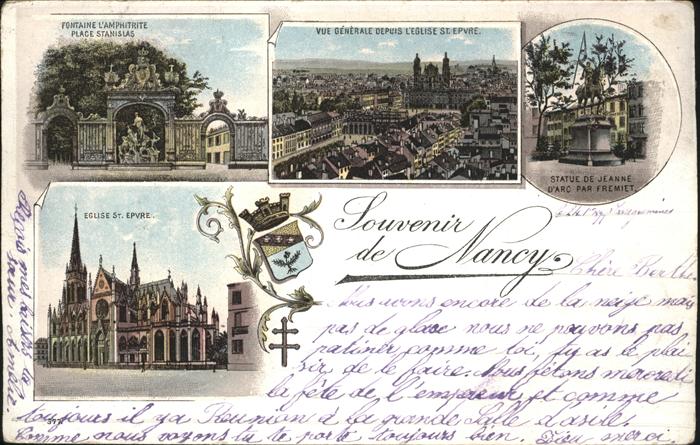 FONTAINE L'AMPHITRITE
PLACE STANISLAS
VUE GÉNÉRALE DEPUIS L'EGLISE ST. EPVRE.
STATUE DE JEANNE
D'ARC PAR FREMIET.
EGLISE ST. EPVRE.
Souvenir
de Nancy
Chère Berthe
Nous avons encore de la neige mais
pas de glace nous ne pouvons pas
patiner comme toi, tu as le plai
sir de le faire. Nous fetons mercredi
la fête de l'empereur et comme
toujours il y a Reunion a la grande Salle
Comme nous voyons tu te porte toujours bien. Dieu merci